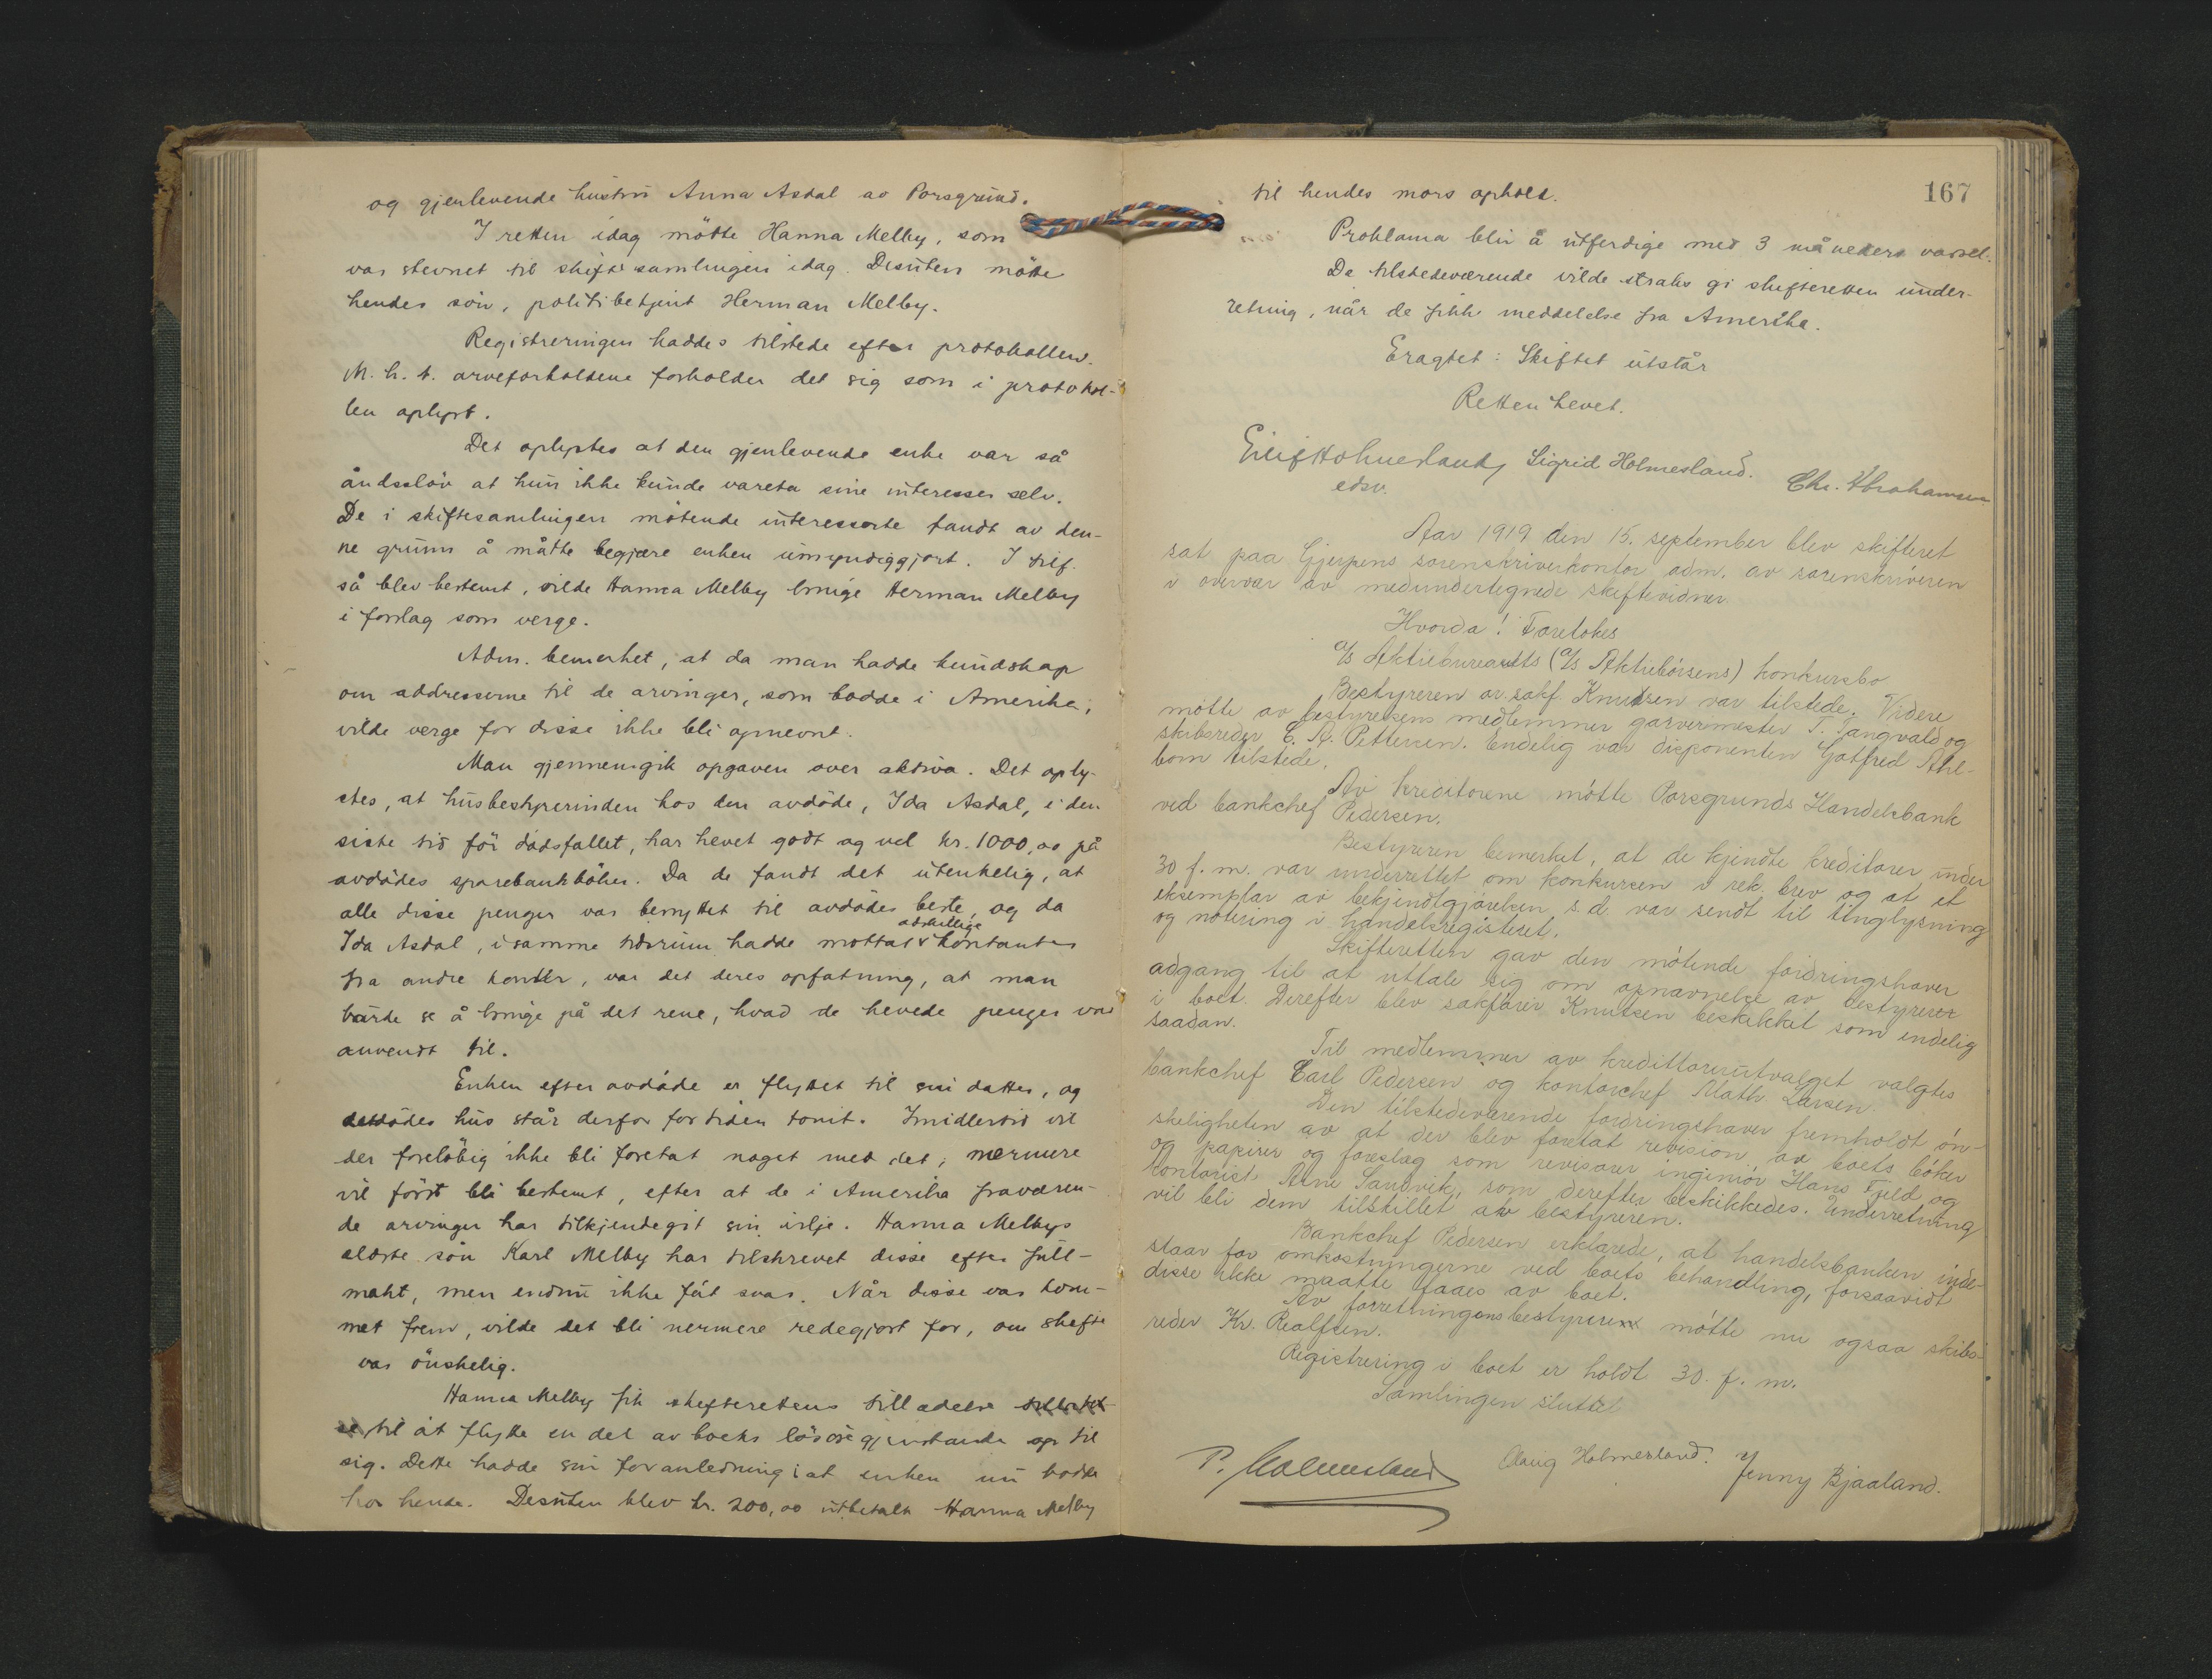 og gjenlevende hustru Anna Asdal av Porsgrund.
I retten idag mötte Hanna Melby, som
var stevnet til skiftesamlingen idag. Desuten mötte
hendes sön, politibetjent Herman Melby.
Registreringen haddes tilstede efter protokollen.
M. h. t. arveforholdene forholder det sig som i protokol-
len oplyst.
Det oplystes at den gjenlevende enke var så
åndsslöv at hun ikke kunde vareta sine interesser selv.
De i skiftesamlingen mötende interesserte fandt av den-
ne grunn å måtte begjære enken umyndiggjort. I tilf.
så blev bestemt, vilde Hanna Melby bringe Herman Melby
i forslag som verge.
Adm. bemerket, at da man hadde kundskap
om addresserne til de arvinger, som bodde i Amerika,
vilde verge for disse ikke bli opnevnt.
Man gjennemgik opgaven over aktiva. Det oply-
stes, at husbestyrerinden hos den avdöde, Ida Asdal, i den
siste tid för dödsfallet, har hevet godt og vel kr. 1000,00 på
avdödes sparebankböker. Da de fandt det utenkelig, at
alle disse penger var benyttet til avdödes beste, og da
Ida Asdal, i samme tidsrum hadde mottat adskillige kontanter
fra andre konti, var det deres opfatning, at man
burde se å bringe på det rene, hvad de hevede penger var
anvendt til.
Enken efter avdöde er flyttet til sin datter, og
avdödes hus står derfor for tiden tomt. Imidlertid vil
der foreløbig ikke bli foretat noget med det; nærmere
vil först bli bestemt, efter at de i Amerika fraværen-
de arvinger har tilkjendegit sin vilje. Hanna Melbys
eldste sön Karl Melby har tilskrevet disse efter full-
makt, men endnu ikke fåt svar. Når disse var kom-
met frem, vilde det bli nermere redegjort for, om skifte
var önskelig.
Hanna Melby fik skifteretens tilladelse
til åt flytte en del av boets lösöregjenstande op til
sig. Dette hadde sin foranledning i at enken nu bodde
hos hende. Desuten blev kr. 200,00 utbetalt Hanna Melby
167
til hendes mors ophold.
Proklama blir å utferdige med 3 måneders varsel.
De tilstedeværende vilde straks gi skifteretten under-
retning, når de fikk meddelelse fra Amerika.
Eragtet: Skiftet utstår
Retten hevet.
Eilif Holmesland, Sigrid Holmesland. Chr. Abrahamsen
edsv.
Aar 1919 den 15. september blev skifteret
sat paa Gjerpens sorenskriverkontor adm. av sorenskriveren
i overvær av medundertegnede skiftevidner.
Hvorda! Foretokes
A/s Aktiebureauets (A/s Aktiebörsens) konkursbo
Bestyreren o.r.sakf. Knudsen var tilstede. Videre
mötte av bestyrelsens medlemmer garvermester T. Tangvald og
skibsreder C. A. Pettersen. Endelig var disponenten Gotfred Ahl-
bom tilstede.
Av kreditorene mötte Porsgrunds Handelsbank
ved bankchef Pedersen.
Bestyreren bemerket, at de kjendte kreditorer under
30 f. m. var underrettet om konkursen i rek. brev og at et
eksemplar av bekjendtgjörelsen s. d. var sendt til tinglysning
og notering i handelsregisteret.
Skifteretten gav den mötende fordringshaver
adgang til at uttale sig om opnævnelse av bestyrerer
i boet. Derefter blev sakförer Knutsen beskikket som endelig
saadan.
Til medlemmer av kreditorutvalget valgtes
bankchef Carl Pedersen og kontorchef Math. Larsen.
Den tilstedeværende fordringshaver fremholdt ön-
skeligheten av at der blev foretat revision av boets böker
og papirer og foreslog som revisorer ingeniör Hans Fjeld og
kontorist Arne Sandvik, som derefter beskikkedes. Underretning
vil bli dem tilstillet av bestyreren.
Bankchef Pedersen erklærede, at handelsbanken inde-
staar for omkostningerne ved boets behandling, forsaavidt
disse ikke maatte faaes av boet.
Av forretningens bestyrere mötte nu ogsaa skibs-
reder Kr. Realfsen.
Registrering i boet er holdt 30. f. m.
Samlingen sluttet
P. Holmesland Aaug Holmesland. Jenny Bjaaland.